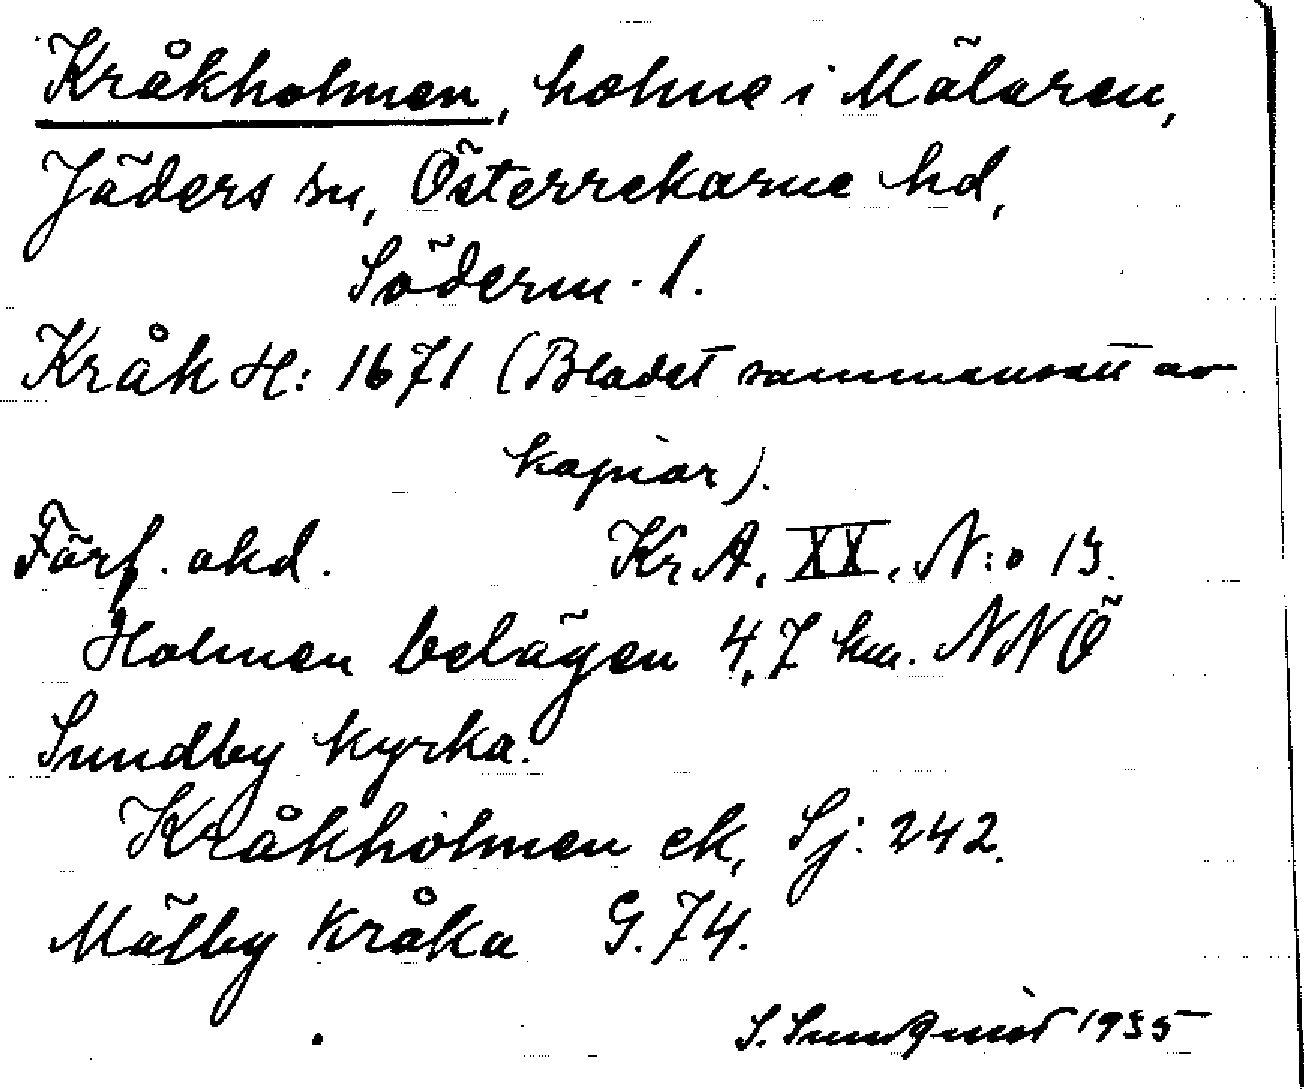 Kråkholmen, holme i Mälaren,
Jäders sn, Österrekarne hd,
Söderm. l.
Kråk H: 1671 (Bladet sammansatt av
kapior).
Förf. okd. Kr A, XX, N:o 13.
Holmen belägen 4,7 km. NNÖ
Sundby kyrka.
Kråkholmen ek, Sj: 242.
Mälby Kråka G. 74.
S. Sundquist 1935